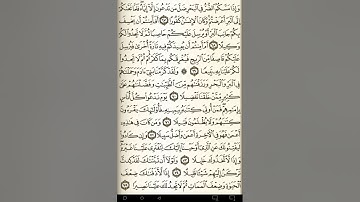 وَإِذَا مَسَّكُمُ ٱلضُّرُّ فِى ٱلۡبَحۡرِ ضَلَّ مَن تَدۡعُونَ إِلَّآ إِيَّاهُۖ فَلَمَّا نَجَّىٰكُمۡ
إِلَى ٱلۡبَرِّ أَعۡرَضۡتُمۡۚ وَكَانَ ٱلۡإِنسَٰنُ كَفُورًا ٦٧ أَفَأَمِنتُمۡ أَن يَخۡسِفَ
بِكُمۡ جَانِبَ ٱلۡبَرِّ أَوۡ يُرۡسِلَ عَلَيۡكُمۡ حَاصِبٗا ثُمَّ لَا تَجِدُواْ لَكُمۡ
وَكِيلًا ٦٨ أَمۡ أَمِنتُمۡ أَن يُعِيدَكُمۡ فِيهِ تَارَةً أُخۡرَىٰ فَيُرۡسِلَ
عَلَيۡكُمۡ قَاصِفٗا مِّنَ ٱلرِّيحِ فَيُغۡرِقَكُم بِمَا كَفَرۡتُمۡ ثُمَّ لَا تَجِدُواْ
لَكُمۡ عَلَيۡنَا بِهِۦ تَبِيعٗا ٦٩ ۞ وَلَقَدۡ كَرَّمۡنَا بَنِىٓ ءَادَمَ وَحَمَلۡنَٰهُمۡ
فِى ٱلۡبَرِّ وَٱلۡبَحۡرِ وَرَزَقۡنَٰهُم مِّنَ ٱلطَّيِّبَٰتِ وَفَضَّلۡنَٰهُمۡ عَلَىٰ
كَثِيرٖ مِّمَّنۡ خَلَقۡنَا تَفۡضِيلٗا ٧٠ يَوۡمَ نَدۡعُواْ كُلَّ أُنَاسِۭ
بِإِمَٰمِهِمۡۖ فَمَنۡ أُوتِىَ كِتَٰبَهُۥ بِيَمِينِهِۦ فَأُوْلَٰٓئِكَ يَقۡرَءُونَ
كِتَٰبَهُمۡ وَلَا يُظۡلَمُونَ فَتِيلٗا ٧١ وَمَن كَانَ فِى هَٰذِهِۦٓ
أَعۡمَىٰ فَهُوَ فِى ٱلۡأٓخِرَةِ أَعۡمَىٰ وَأَضَلُّ سَبِيلٗا ٧٢ وَإِن كَادُواْ
لَيَفۡتِنُونَكَ عَنِ ٱلَّذِىٓ أَوۡحَيۡنَآ إِلَيۡكَ لِتَفۡتَرِىَ عَلَيۡنَا غَيۡرَهُۥۖ
وَإِذٗا لَّٱتَّخَذُوكَ خَلِيلٗا ٧٣ وَلَوۡلَآ أَن ثَبَّتۡنَٰكَ لَقَدۡ كِدتَّ
تَرۡكَنُ إِلَيۡهِمۡ شَيۡـٔٗا قَلِيلًا ٧٤ إِذٗا لَّأَذَقۡنَٰكَ ضِعۡفَ
ٱلۡحَيَوٰةِ وَضِعۡفَ ٱلۡمَمَاتِ ثُمَّ لَا تَجِدُ لَكَ عَلَيۡنَا نَصِيرٗا ٧٥